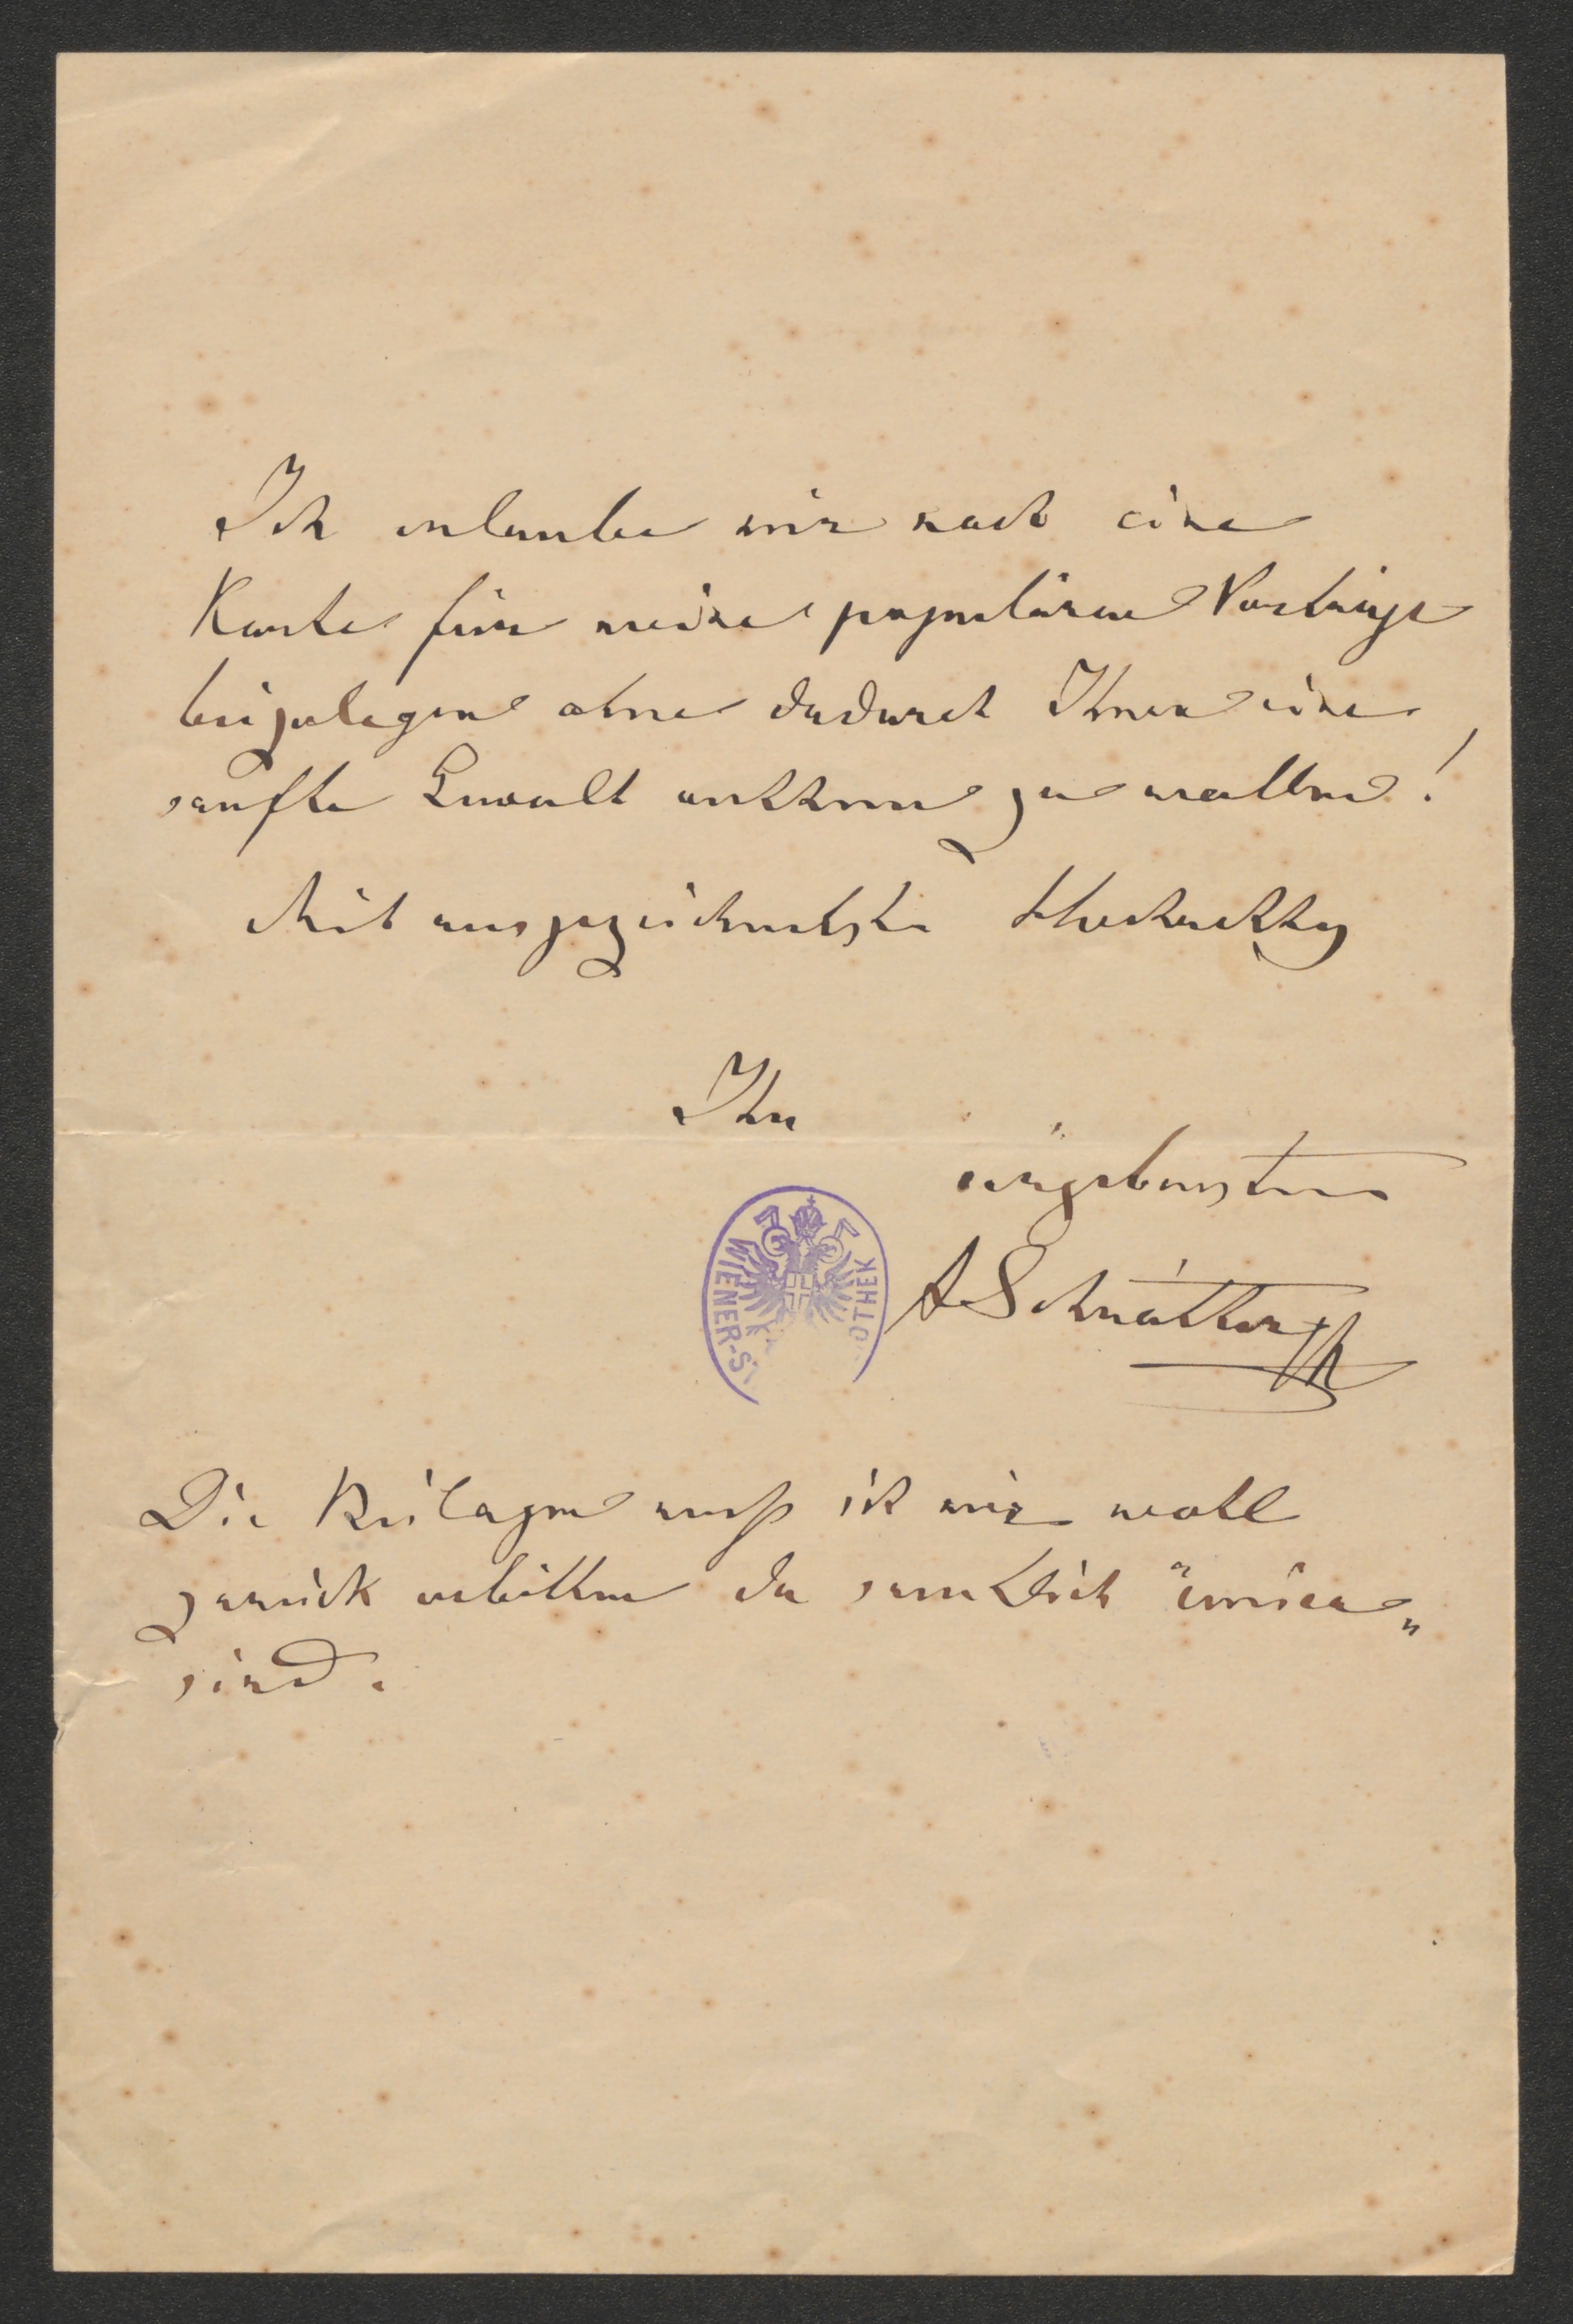 Ich erlaube mir noch eine
Karte für meine populären Vorträge
beizulegen ohne dadurch Ihnen eine
sanfte Gewalt anthun zu wollen!
Mit ausgezeichnetster Hochachtg
Ihr
ergebenster
A Schnattter
WIENER-ST OTHEK
Die Beilagen muß ich mir wohl
zurück erbitten da sämtlich "unica"
sind.